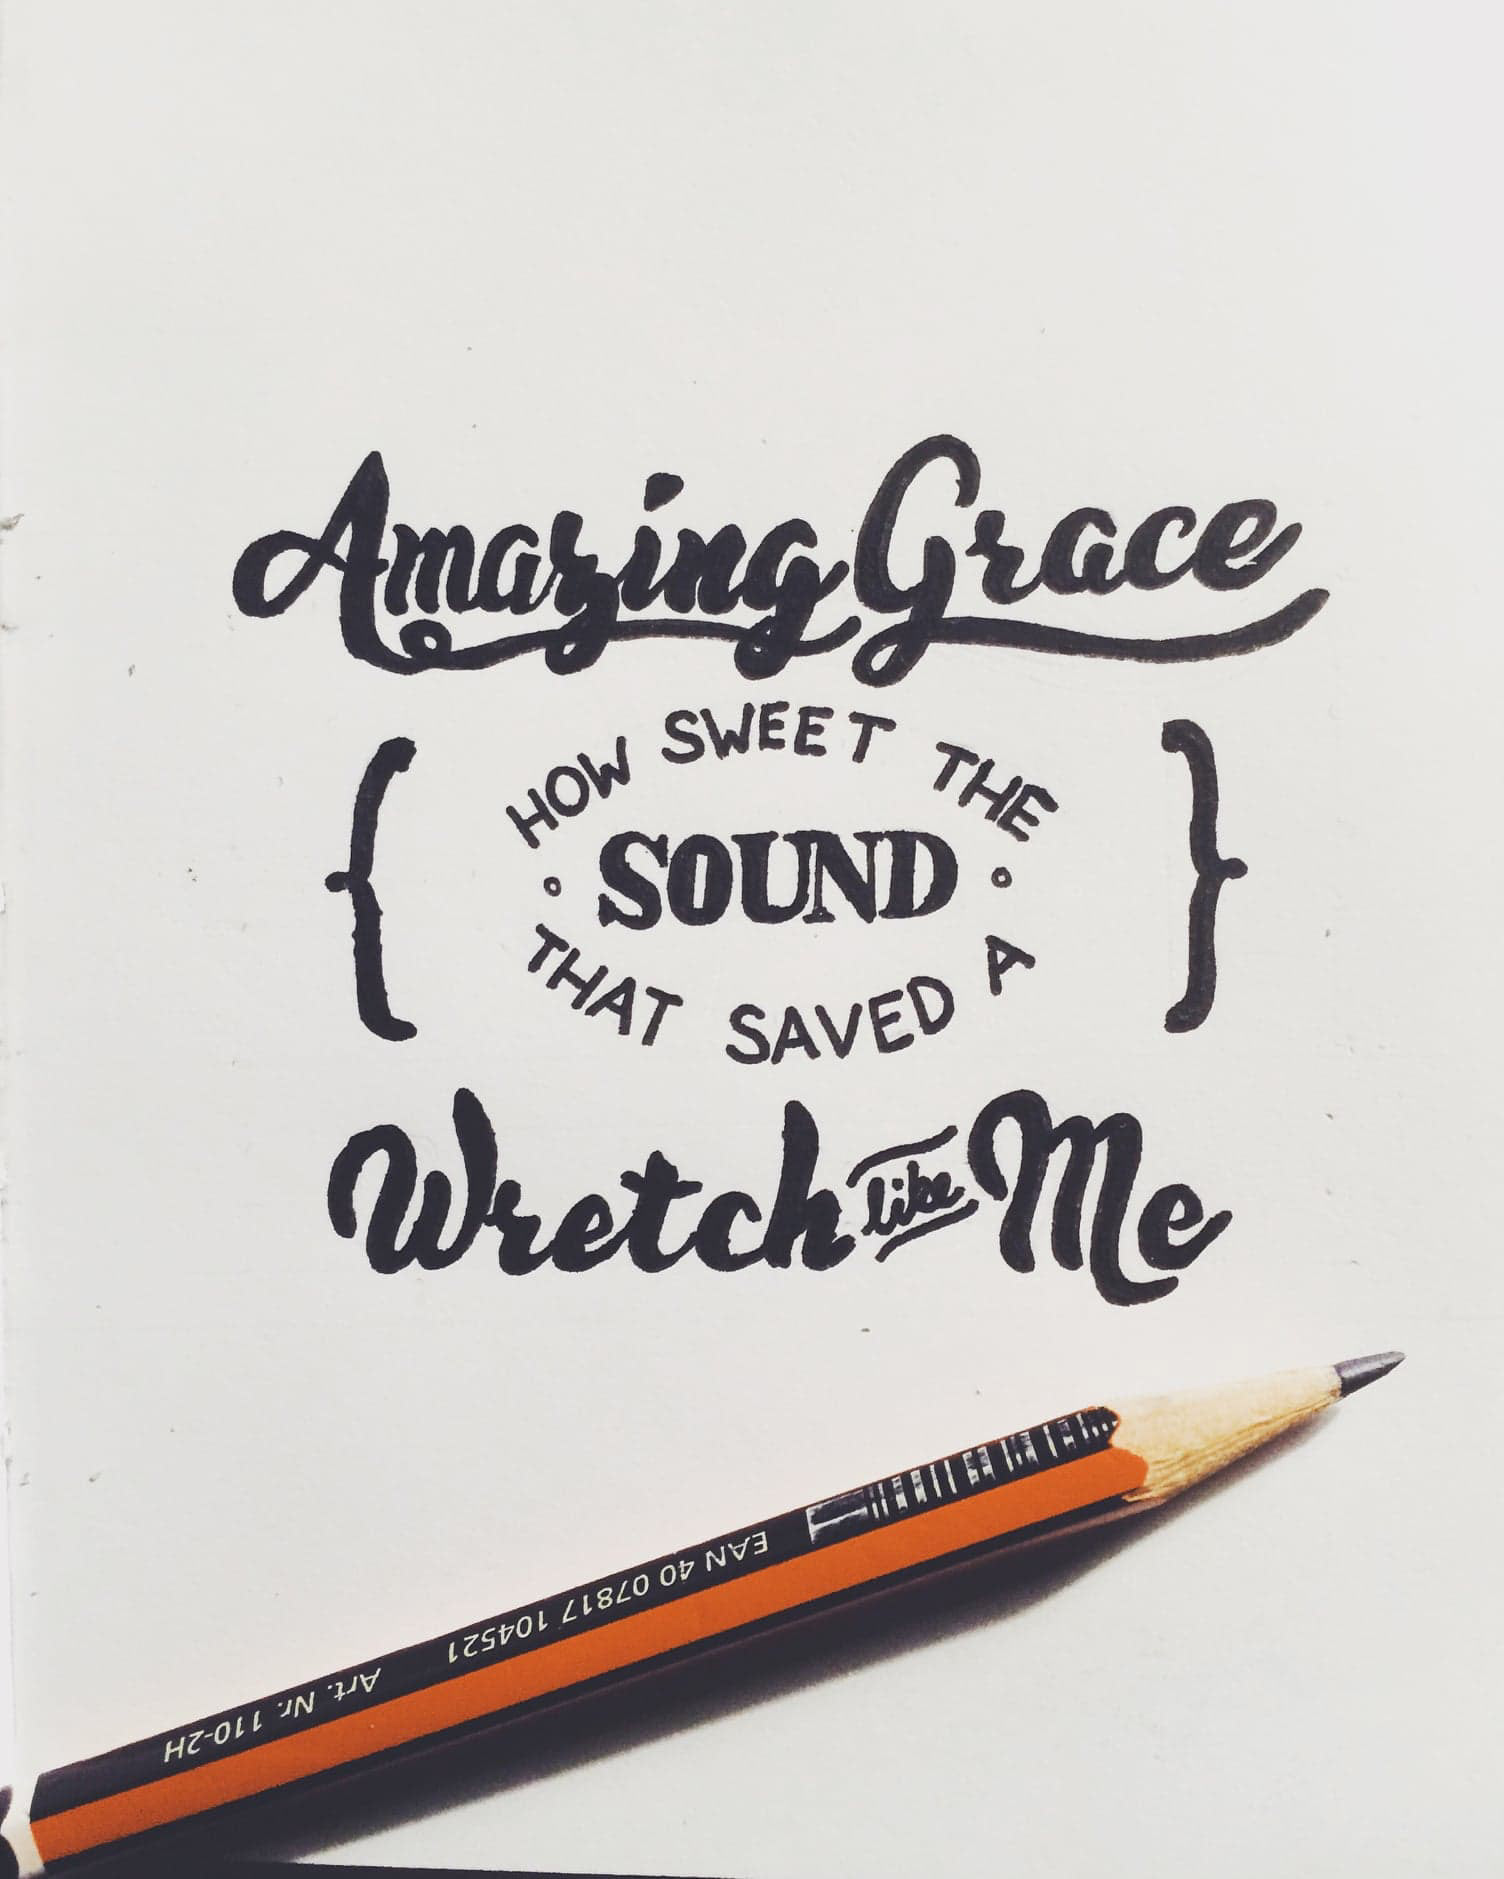 Amazing Grace
HOW SWEET THE
SOUND
THAT SAVED A
Wretch like Me
EAN 40 07817 104521
Art. Nr. 110-2H